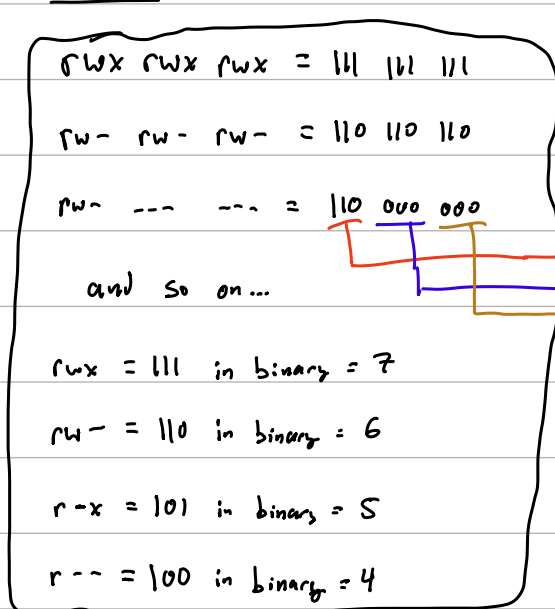 rwx rwx rwx = 111 111 111
rw- rw- rw- = 110 110 110
rw- --- --- = 110 000 000
and so on...
rwx = 111 in binary = 7
rw- = 110 in binary = 6
r-x = 101 in binary = 5
r-- = 100 in binary = 4